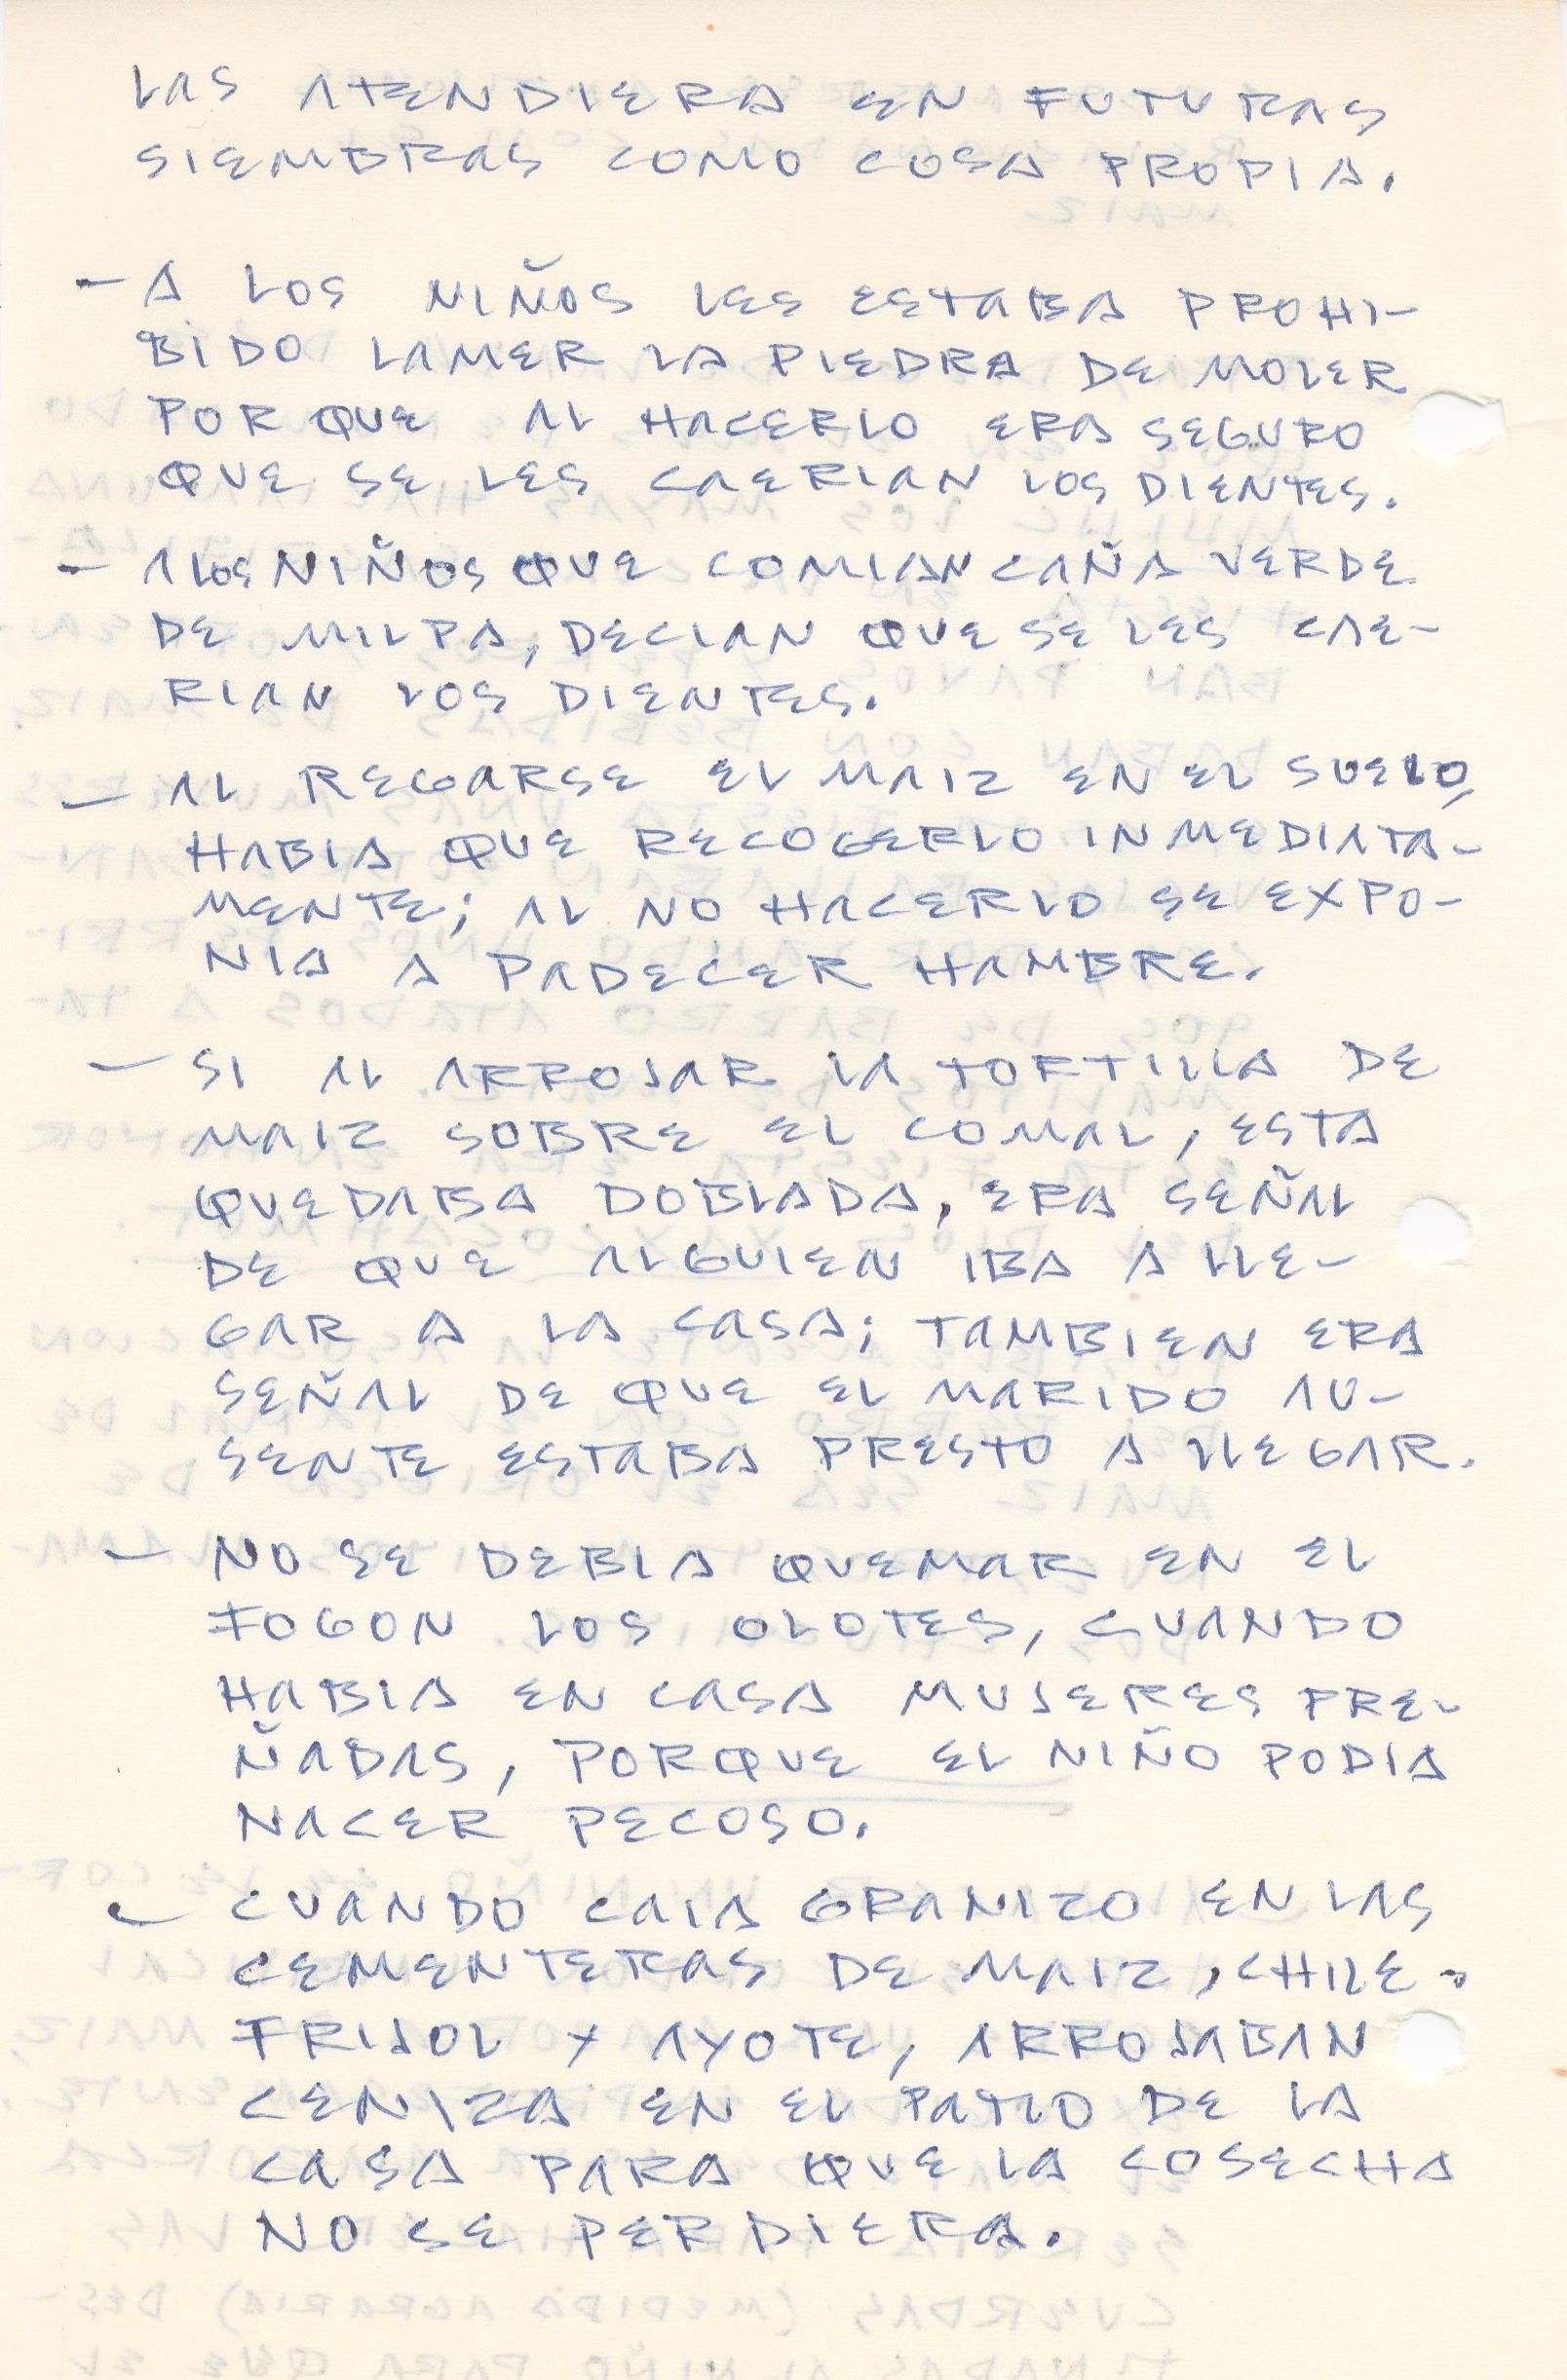 LAS ATENDIERA EN FUTURAS
SIEMBRAS COMO COSA PROPIA.
- A LOS NIÑOS LES ESTABA PROHI-
BIDO LAMER LA PIEDRA DE MOLER
PORQUE AL HACERLO ERA SEGURO
QUE SE LES CAERIAN LOS DIENTES.
- A LOS NIÑOS QUE COMIAN CAÑA VERDE
DE MILPA, DECIAN QUE SE LES CAE-
RIAN LOS DIENTES.
- AL REGARSE EL MAIZ EN EL SUELO,
HABIA QUE RECOGERLO INMEDIATA-
MENTE; AL NO HACERLO SE EXPO-
NIA A PADECER HAMBRE.
- SI AL ARROJAR LA TORTILLA DE
MAIZ SOBRE EL COMAL, ESTA
QUEDABA DOBLADA, ERA SEÑAL
DE QUE ALGUIEN IBA A LLE-
GAR A LA CASA; TAMBIEN ERA
SEÑAL DE QUE EL MARIDO AU-
SENTE ESTABA PRESTO A LLEGAR.
- NO SE DEBIA QUEMAR EN EL
FOGON LOS OLOTES, CUANDO
HABIA EN CASA MUJERES PRE-
ÑADAS, PORQUE EL NIÑO PODIA
NACER PECOSO.
- CUANDO CAIA GRANIZO EN LAS
CEMENTERAS DE MAIZ, CHILE,
FRIJOL Y AYOTE, ARROJABAN
CENIZA EN EL PATIO DE LA
CASA PARA QUE LA COSECHA
NO SE PERDIERA.